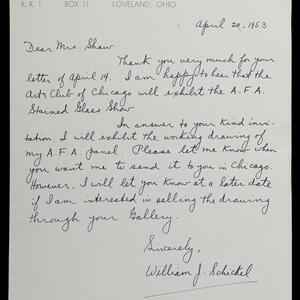 R. R. 1 BOX 11 LOVELAND, OHIO
April 20, 1953
Dear Mrs. Shaw:
Thank you very much for your
letter of April 14. I am happy to hear that the
Arts Club of Chicago will exhibit the A.F.A.
Stained Glass Show.
In answer to your kind invi-
tation, I will exhibit the working drawing of
my A.F.A. panel. Please let me know when
you want me to send it to you in Chicago.
However, I will let you know at a later date
if I am interested in selling the drawing
through your Gallery.
Sincerely,
William J. Schickel